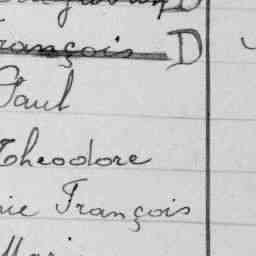 D
François D
Paul
Theodore
rie François